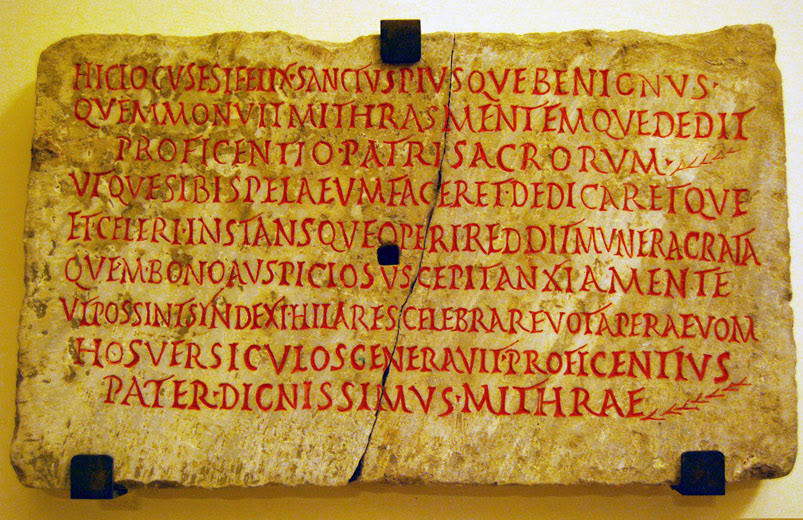 HIC LOCUS EST FELIX·SANCTUS PIUSQUE BENIGNUS·
QUEM MONUIT MITHRAS MENTEMQUE DEDIT
PROFICENTIO·PATRI SACRORUM·
UTQUE SIBI SPELAEUM FACERET·DEDICARETQUE
ET·CELERI·INSTANSQUE OPERI REDDIT MUNERA GRATA
QUEM BONO AUSPICIO SUSCEPIT ANXIA MENTE
UT POSSINT SYNDEXI·HILARES CELEBRARE VOTA PER AEVOM
HOS VERSICULOS GENERAVIT·PROFICENTIUS
PATER·DIGNISSIMUS·MITHRAE